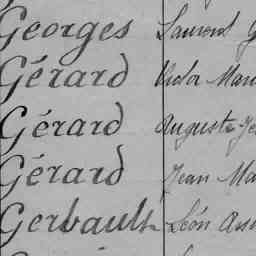 Georges Laurent G
Gérard Victor Mari
Gérard Auguste Je
Gérard Jean Ma
Gerbault Léon